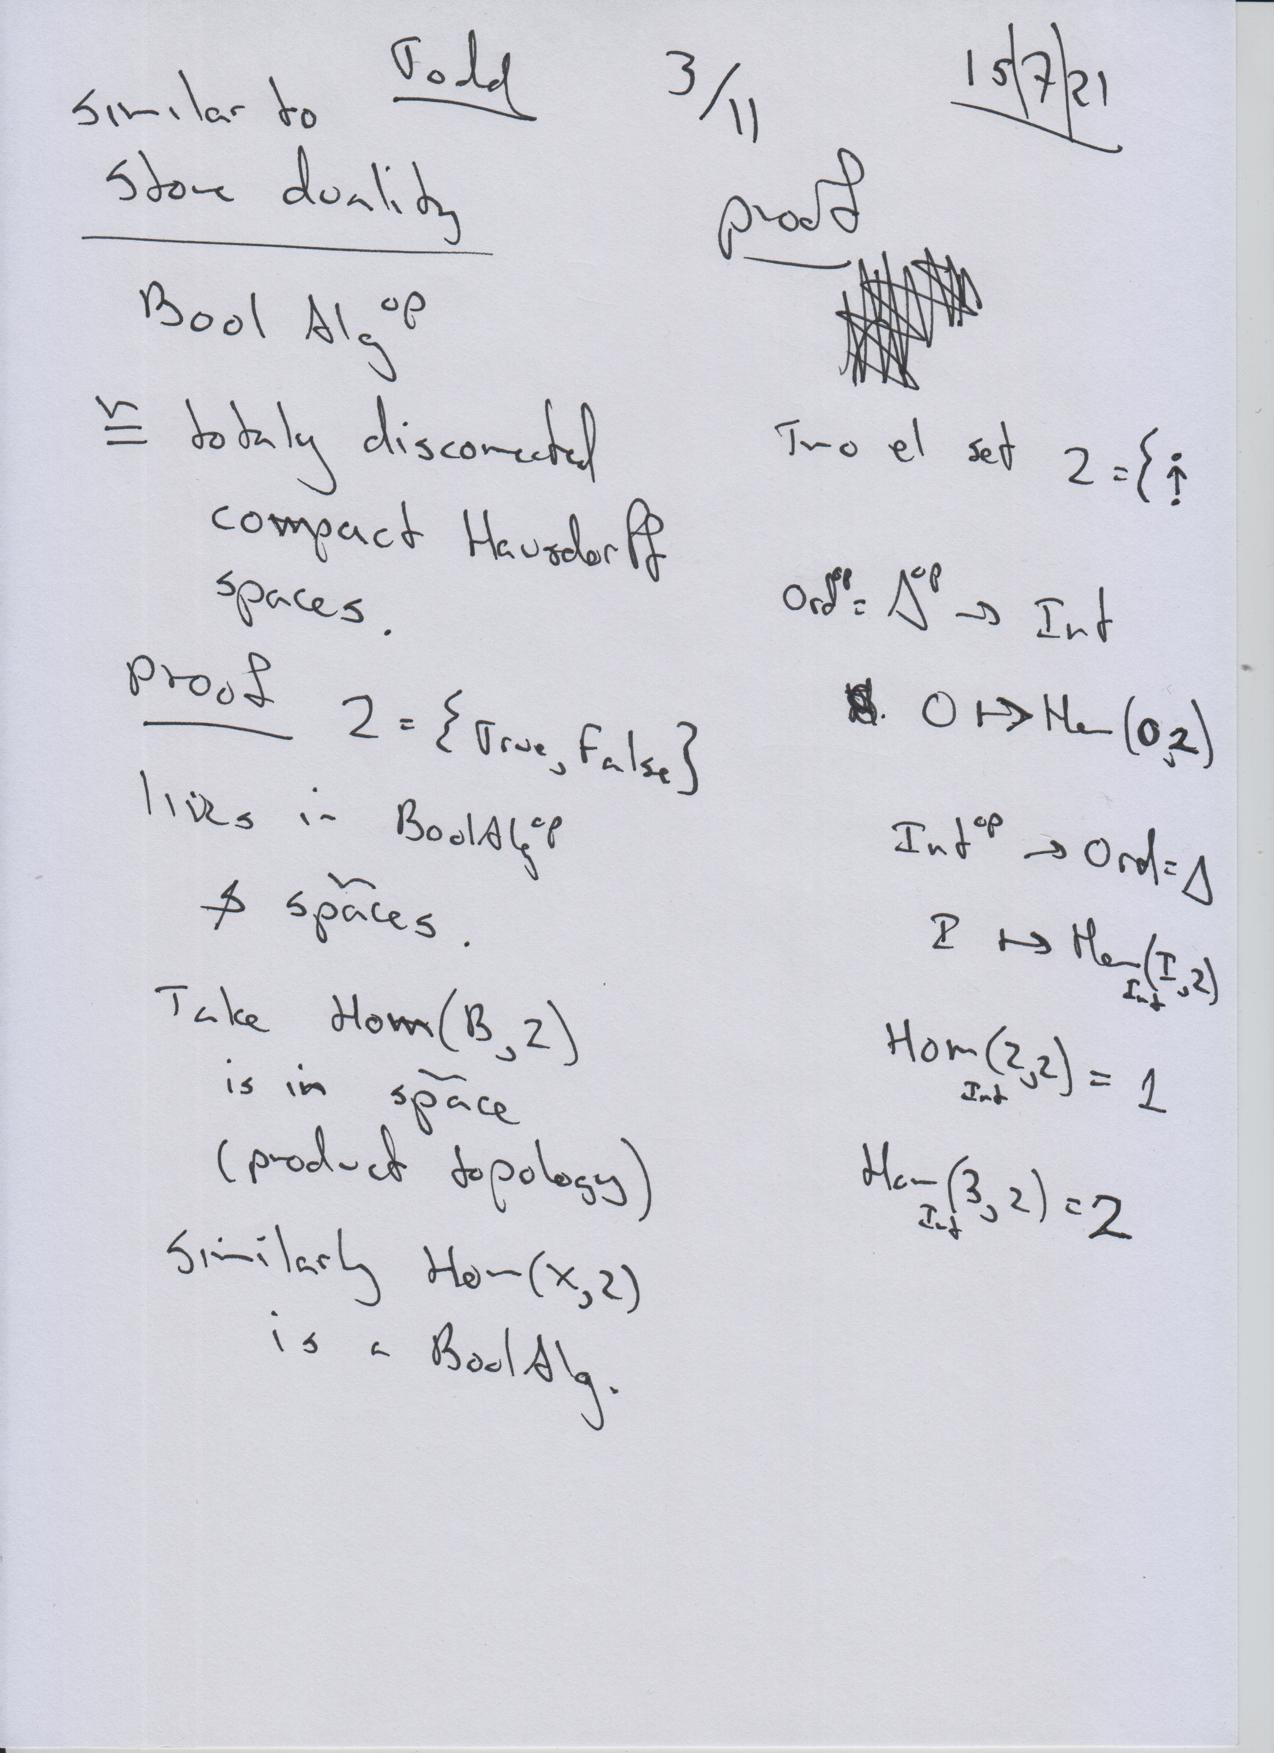 Todd 3/11 15/7/21
Similar to
Stone duality
Bool Alg^op
≅ totaly disconnected
compact Hausdorff
spaces.
Proof 2 = {True, False}
lives in BoolAlg^op
& spaces.
Take Hom(B,2)
is in space
(product topology)
Similarly Hom(X,2)
is a BoolAlg.
proof
Two el set 2 = {
Ord^op = Δ^op → Int
O ↦ Hom(O,2)
Int^op → Ord = Δ
I ↦ Hom_Int(I,2)
Hom_Int(2,2) = 1
Hom_Int(3,2) = 2